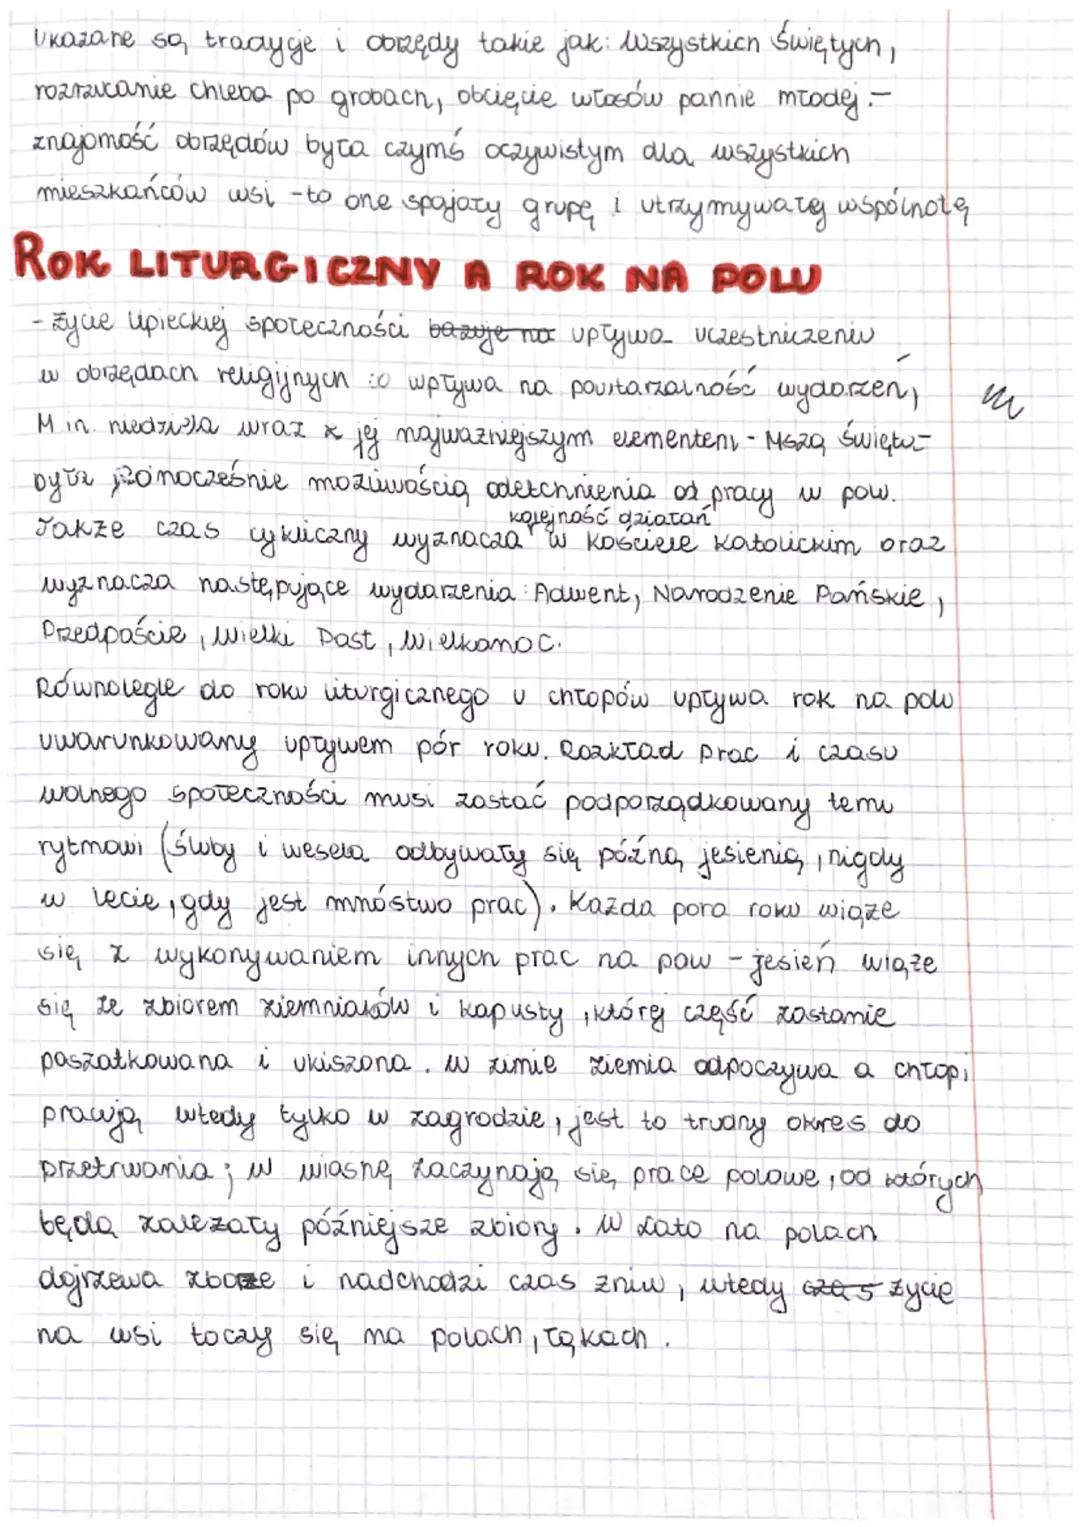 Ukazane są tradycje i obrzędy takie jak: Wszystkich Świętych,
rozrzucanie chleba po grobach, obcięcie włosów pannie młodej.-
znajomość obrzędów była czymś oczywistym dla wszystkich
mieszkańców wsi - to one spajały grupę i utrzymywały wspólnotę
ROK LITURGICZNY A ROK NA POLU
- życie lipieckiej społeczności bazuje na upływa uczestniczeniu
w obrzędach religijnych :o wpływa na powtarzalność wydarzeń,
M in. niedziela wraz z jej najważniejszym elementem - Mszą Świętą -
była równocześnie możliwością odetchnienia od pracy w polu.
kolejność działań
Także czas cykliczny wyznacza w Kościele katolickim oraz
wyznacza następujące wydarzenia: Adwent, Narodzenie Pańskie,
Przedpoście, Wielki Post, Wielkanoc.
Równolegle do roku liturgicznego u chłopów upływa rok na polu
uwarunkowany upływem pór roku. Rozkład prac i czasu
wolnego społeczności musi zostać podporządkowany temu
rytmowi (śluby i wesela odbywały się późną jesienią, nigdy
w lecie, gdy jest mnóstwo prac). Każda pora roku wiąże
się z wykonywaniem innych prac na polu - jesień wiąże
się ze zbiorem ziemniaków i kapusty, której część zostanie
poszatkowana i ukiszona. W zimie ziemia odpoczywa a chłopi
pracują wtedy tylko w zagrodzie, jest to trudny okres do
przetrwania; w wiosnę zaczynają się prace polowe, od których
będą zależały późniejsze zbiory. W lato na polach
dojrzewa zboże i nadchodzi czas żniw, wtedy czas życie
na wsi toczy się na polach, łąkach.